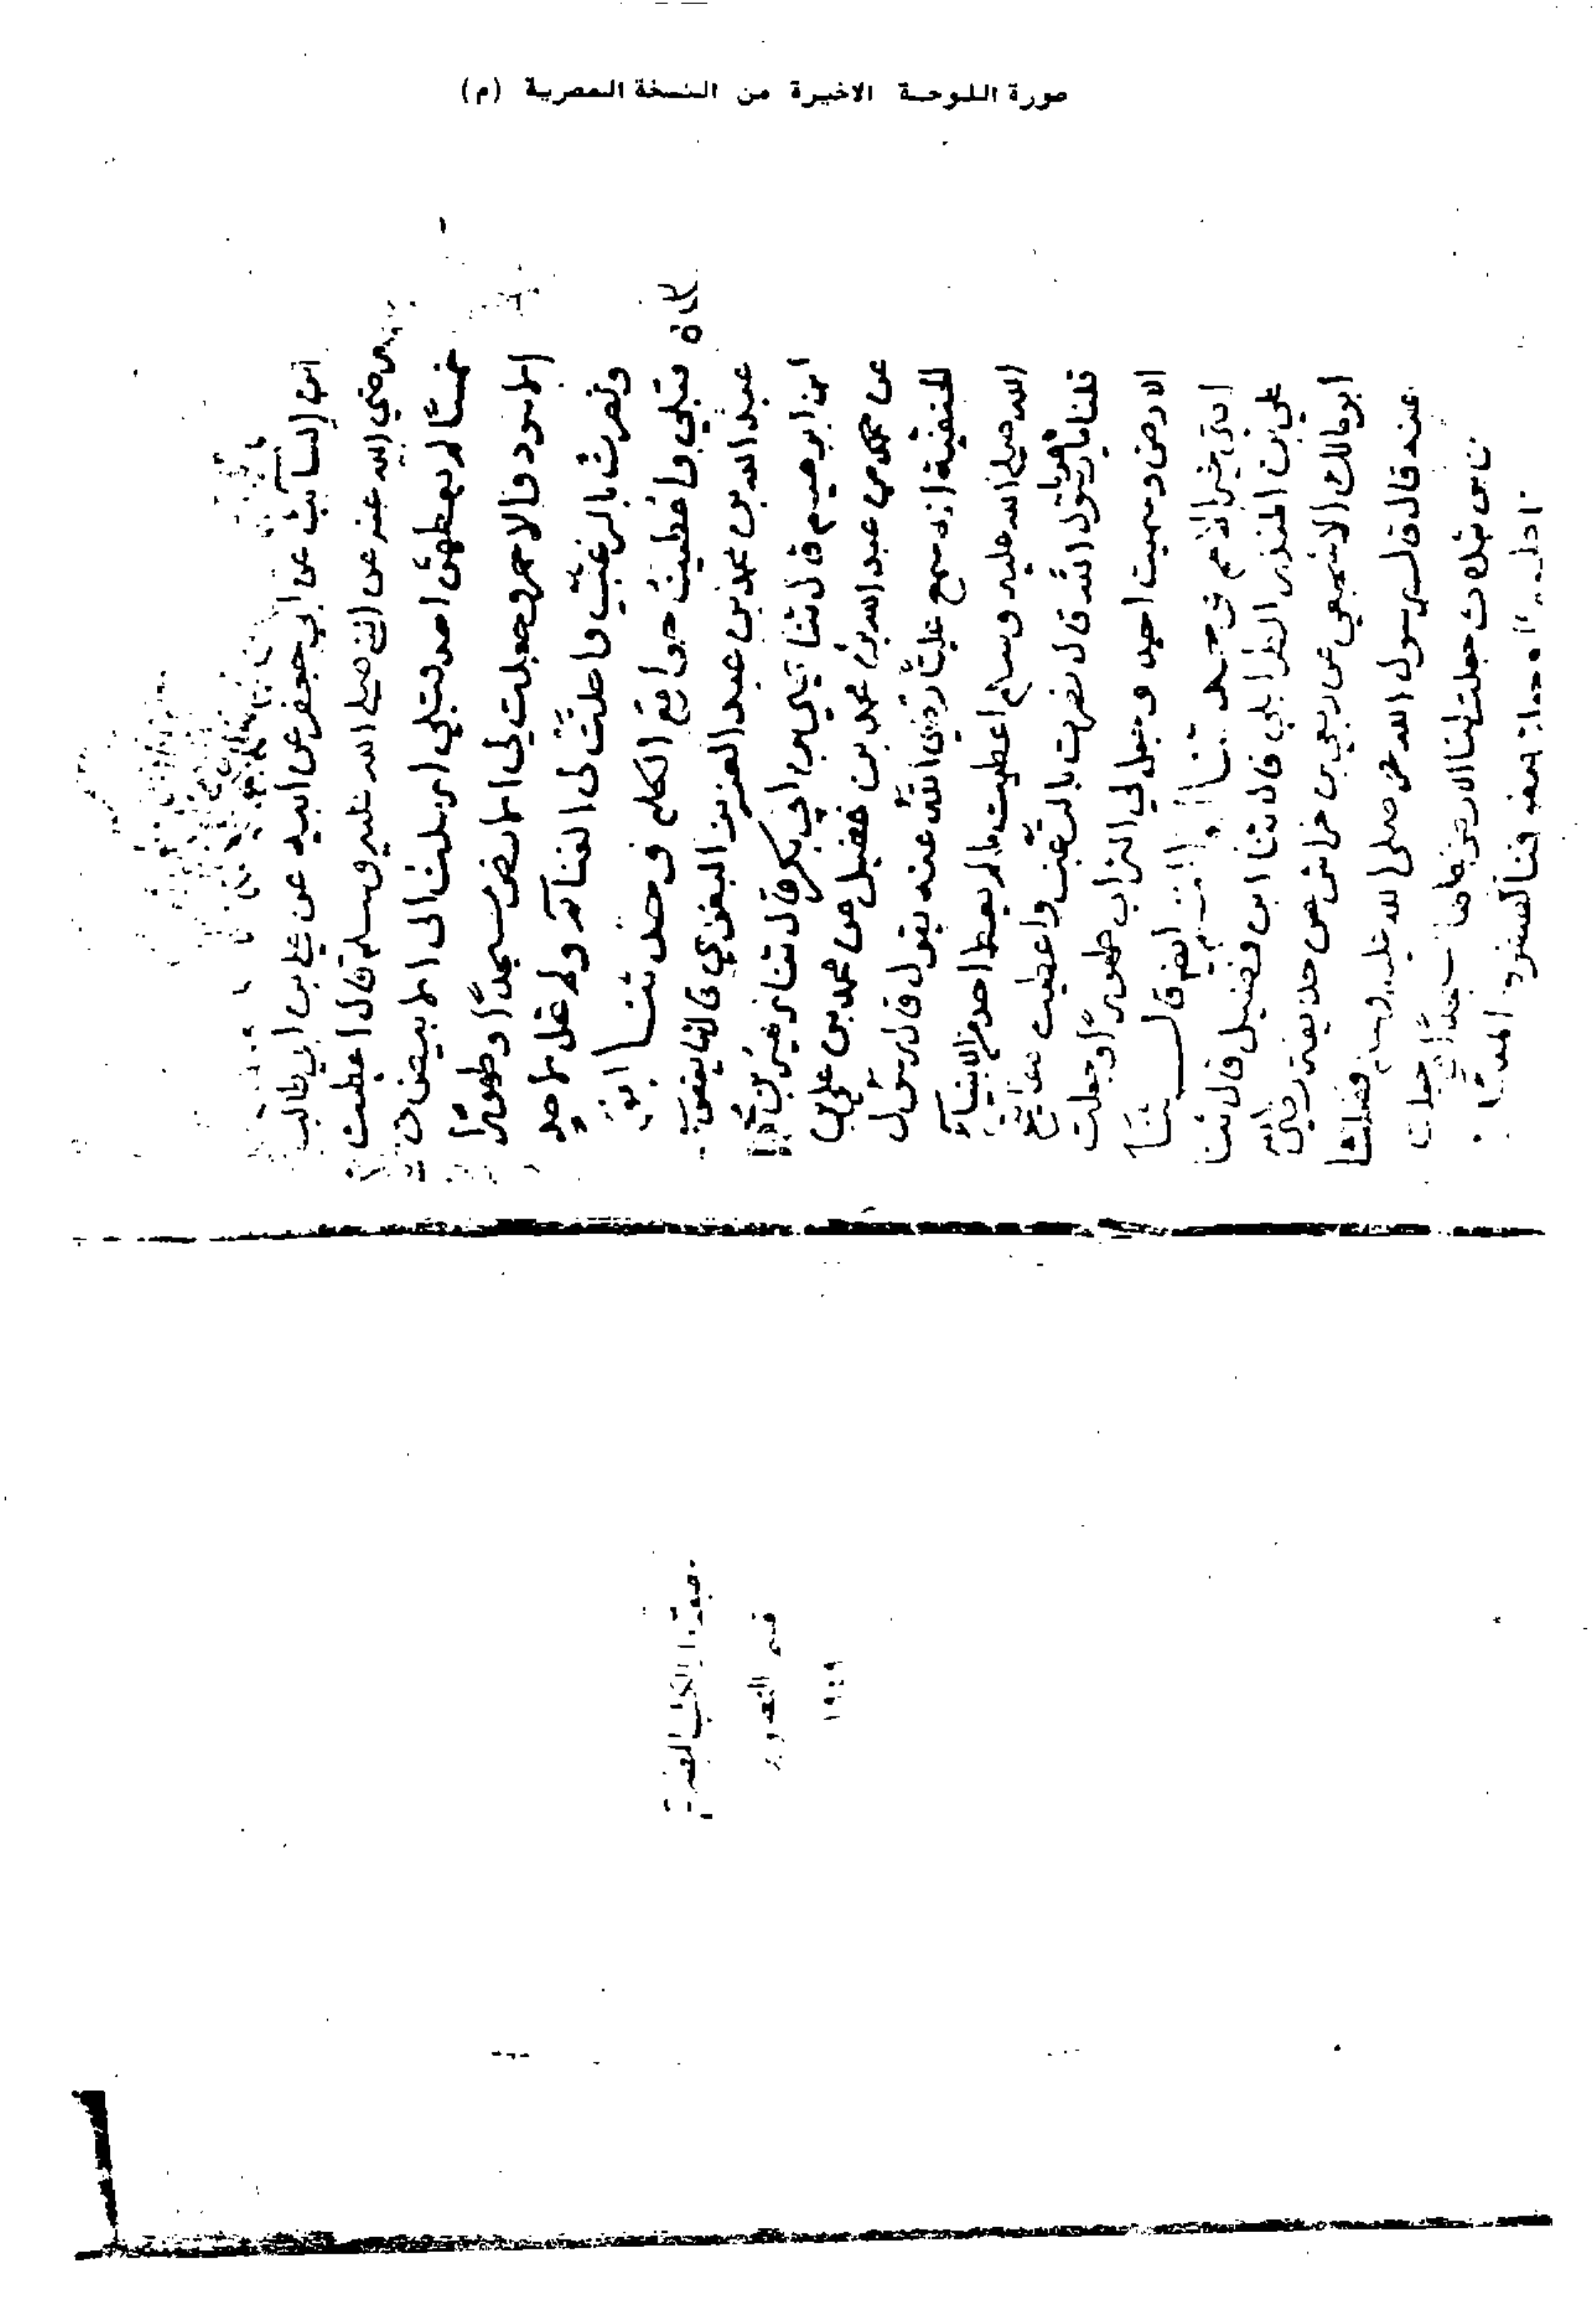 صورة اللوحة الاخيرة من النسخة المصرية (م)
ابن السائب عن ابي جعفر عن ابيه عن علي بن ابي طالب
رضي الله عنه عن النبي صلى الله عليه وسلم قال اعطيت
خمسًا لم يعطهن احد قبلي ارسلت الى الابيض و
الاسود والاحمر وجعلت لي الارض مسجدًا وطهورًا
ونصرت بالرعب واحلت لي الغنائم ولم تحل لاحد
كان قبلي واعطيت جوامع الكلم وحدثنا ابو
عبد الله بن محمد بن عبد العزيز البغوي قال
ابن ابرهيم قال ثنا يحيى بن ابي بكر قال ثنا زهير بن
عن محمد عن عبد الله بن محمد بن عقيل عن محمد بن علي بن
الحنفية انه سمع عليًّا رضي الله عنه يقول قال رسول
الله صلى الله عليه وسلم اعطيت ما لم يعط احد من الانبياء
قلنا ما هو يا رسول الله قال نصرت بالرعب واعطيت مفاتيح
الارض وسميت احمد وجعل لي التراب طهورًا وجعلت
امتي خير الامم وحد ثنا ايضم قال ثنا
علي بن المنذر الطرايلي قال ثنا ابن فضيل قال ثنا
ابو مالك الاشجعي عن ربعي بن خراش عن حذيفة رضي الله
عنه قال قال رسول الله صلى الله عليه وسلم فضلنا
بثلاث جعلت لنا الارض كلها مسجدًا وجعلت
جوزة الكتب المصرية
قسم التصوير